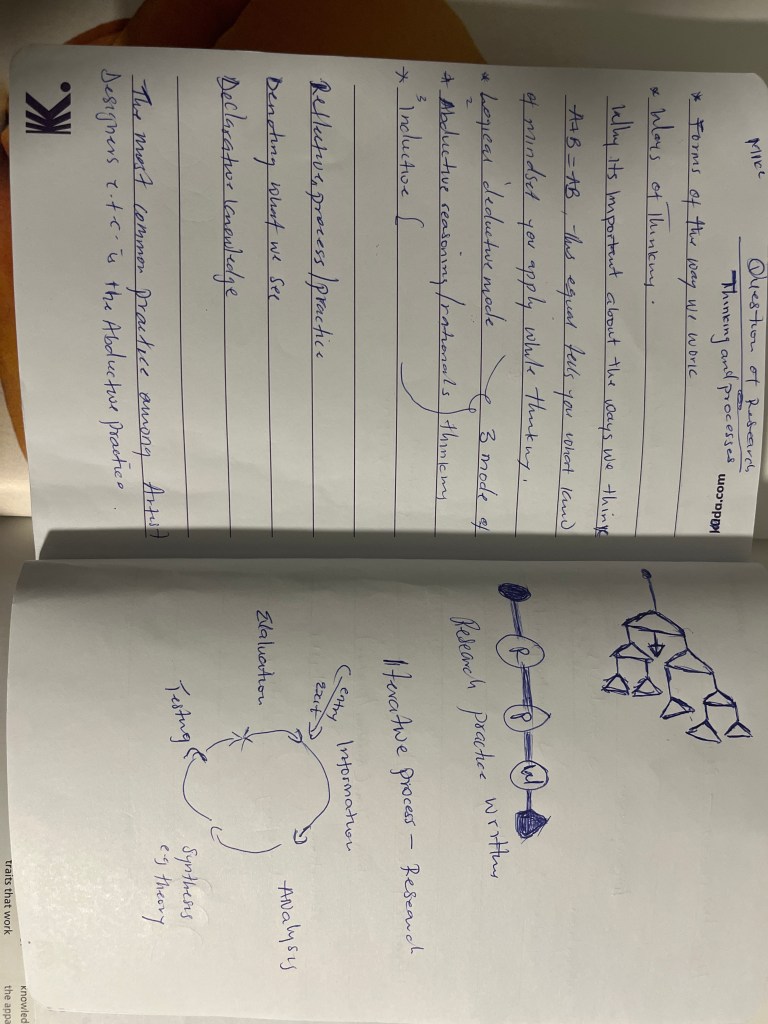 Mike
Question of Research
Thinking and processes
Kadda.com
* Forms of the way we work
* Ways of Thinking.
Why its important about the ways we think
A+B = AB, this equal tells you what kind
of mindset you apply while thinking.
* Logical deductive mode
3 mode of
2
* Abductive reasoning/rationals
thinking
3
* Inductive
Reflective process/practice
Denoting what we see
Declarative knowledge
The most common practice among Artist
Designers e.t.c. is the Abductive practice.
K.
R P W
Research practice written
Iterative process – Research
entry
exit
Information
Analysis
Synthesis
eg theory
Testing
Evaluation
traits that work
knowled
the appa